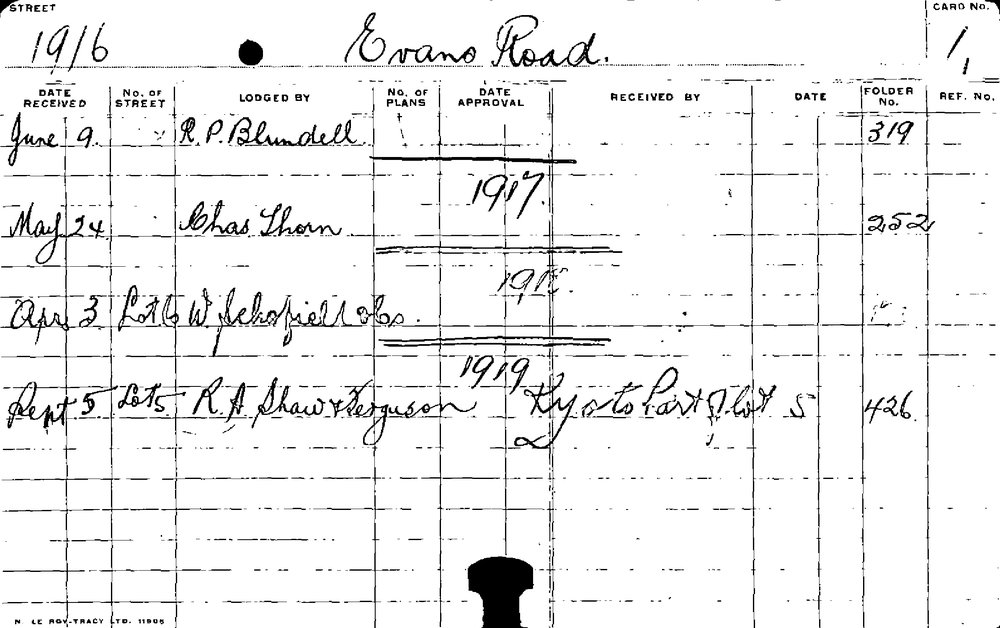 STREET CARD No.
1916 Evans Road. 1,
DATE RECEIVED No. OF STREET LODGED BY No. OF PLANS DATE APPROVAL RECEIVED BY DATE FOLDER No. REF. No.
June 9. R. P. Blundell 319
1917.
May 24 Chas. Thorn 252
Apr. 3 Lot 6 W. Schofield & Co.
1919
Sept 5 Lot 5 R A Shaw & Ferguson Kyoto Part of lot 5 426
N. LE ROY-TRACY LTD. 11905